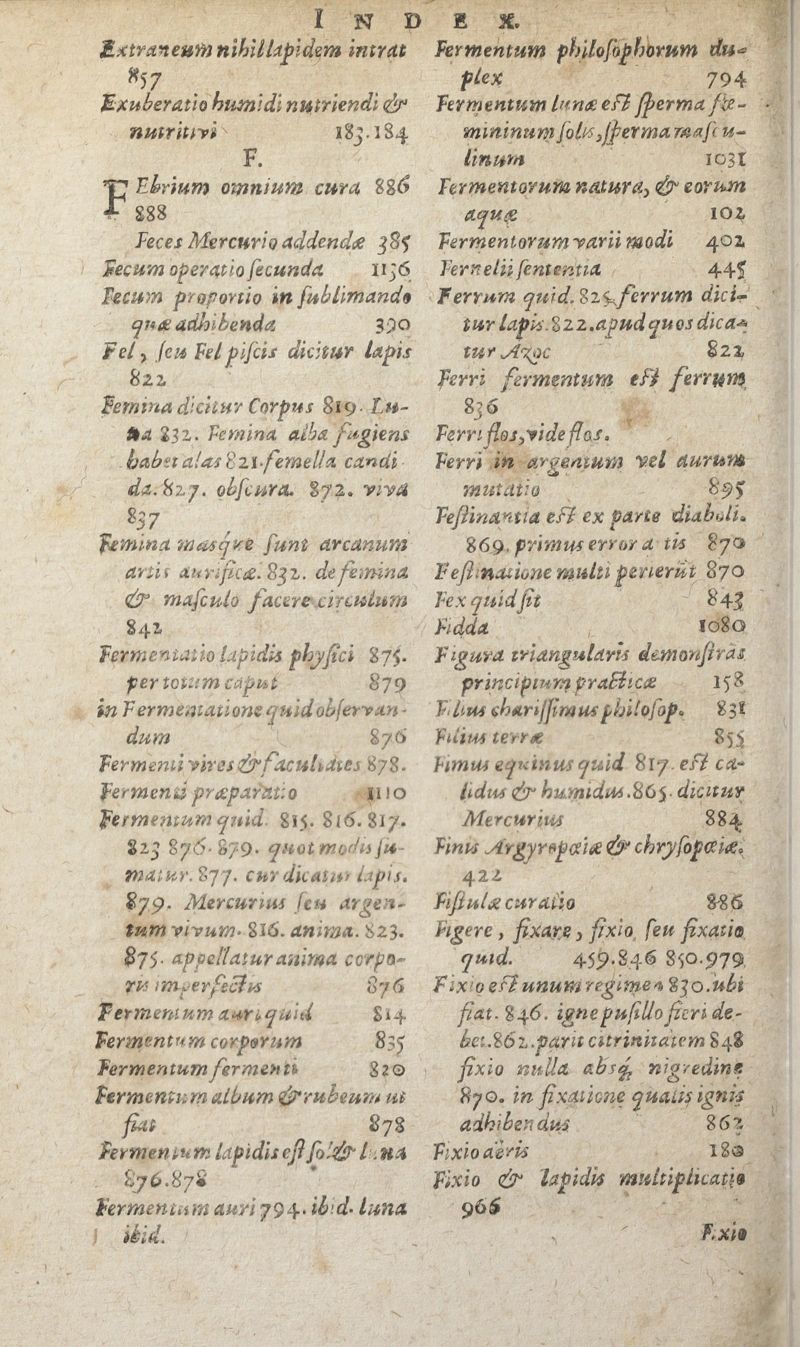 INDEX.
Extraneum nihil lapidem intrat
857
Exuberatio humidi nutriendi &
nutritivi 183.184
F.
FEbrium omnium cura 886
888
Feces Mercurio addendæ 385
Fecum operatio secunda 1136
Fecum proportio in sublimando
quæ adhibenda 390
Fel, seu Fel piscis dicitur lapis
822
Femina dicitur Corpus 819. Lu-
na 832. Femina alba fugiens
habet alas 821. femella candi
da. 827. obscura. 872. viva
837
Femina masque sunt arcanum
artis aurificæ. 832. de femina
& masculo facere circulum
842
Fermentatio lapidis physici 875.
per totum caput 879
in Fermentatione quid observan-
dum 876
Fermenti vires & facultates 878.
Fermenti præparatio 1110
Fermentum quid. 815. 816. 817.
823 876. 879. quot modis su-
matur. 877. cur dicatur lapis.
879. Mercurius seu argen-
tum vivum. 816. anima. 823.
875. appellatur anima corpo-
ris imperfectis 876
Fermentum auri quid 814
Fermentum corporum 835
Fermentum fermenti 820
Fermentum album & rubeum ut
fiat 878
Fermentum lapidis est sol & luna
876.878
Fermentum auri 794. ibid. luna
ibid.
Fermentum philosophorum du-
plex 794
Fermentum lunæ est sperma fœ-
mininum solis, sperma mascu-
linum 1031
Fermentorum natura, & eorum
aquæ 102
Fermentorum varii modi 402
Fernelii sententia 445
Ferrum quid. 825. ferrum dici-
tur lapis. 822. apud quos dica-
tur Azoc 822
Ferri fermentum est ferrum
836
Ferri flos, vide flos.
Ferri in argentum vel aurum
mutatio 895
Festinantia est ex parte diaboli.
869. primus error a tis 870
Festinatione multi perierūt 870
Fex quid sit 843
Fidda 1080
Figura triangularis demonstrās
principium practicæ 158
Filius charissimus philosop. 831
Filius terræ 855
Fimus equinus quid 817. est ca-
lidus & humidus. 865. dicitur
Mercurius 884
Finis Argyropœiæ & chrysopœiæ.
422
Fistulæ curatio 886
Figere, fixare, fixio, seu fixatio
quid. 459.846 850.979
Fixio est unum regimen 830. ubi
fiat. 846. igne pusillo fieri de-
bet. 862. parit citrinitatem 848
fixio nulla absq; nigredine
870. in fixatione qualis ignis
adhibendus 862
Fixio aëris 180
Fixio & lapidis multiplicatio
966
Fixio